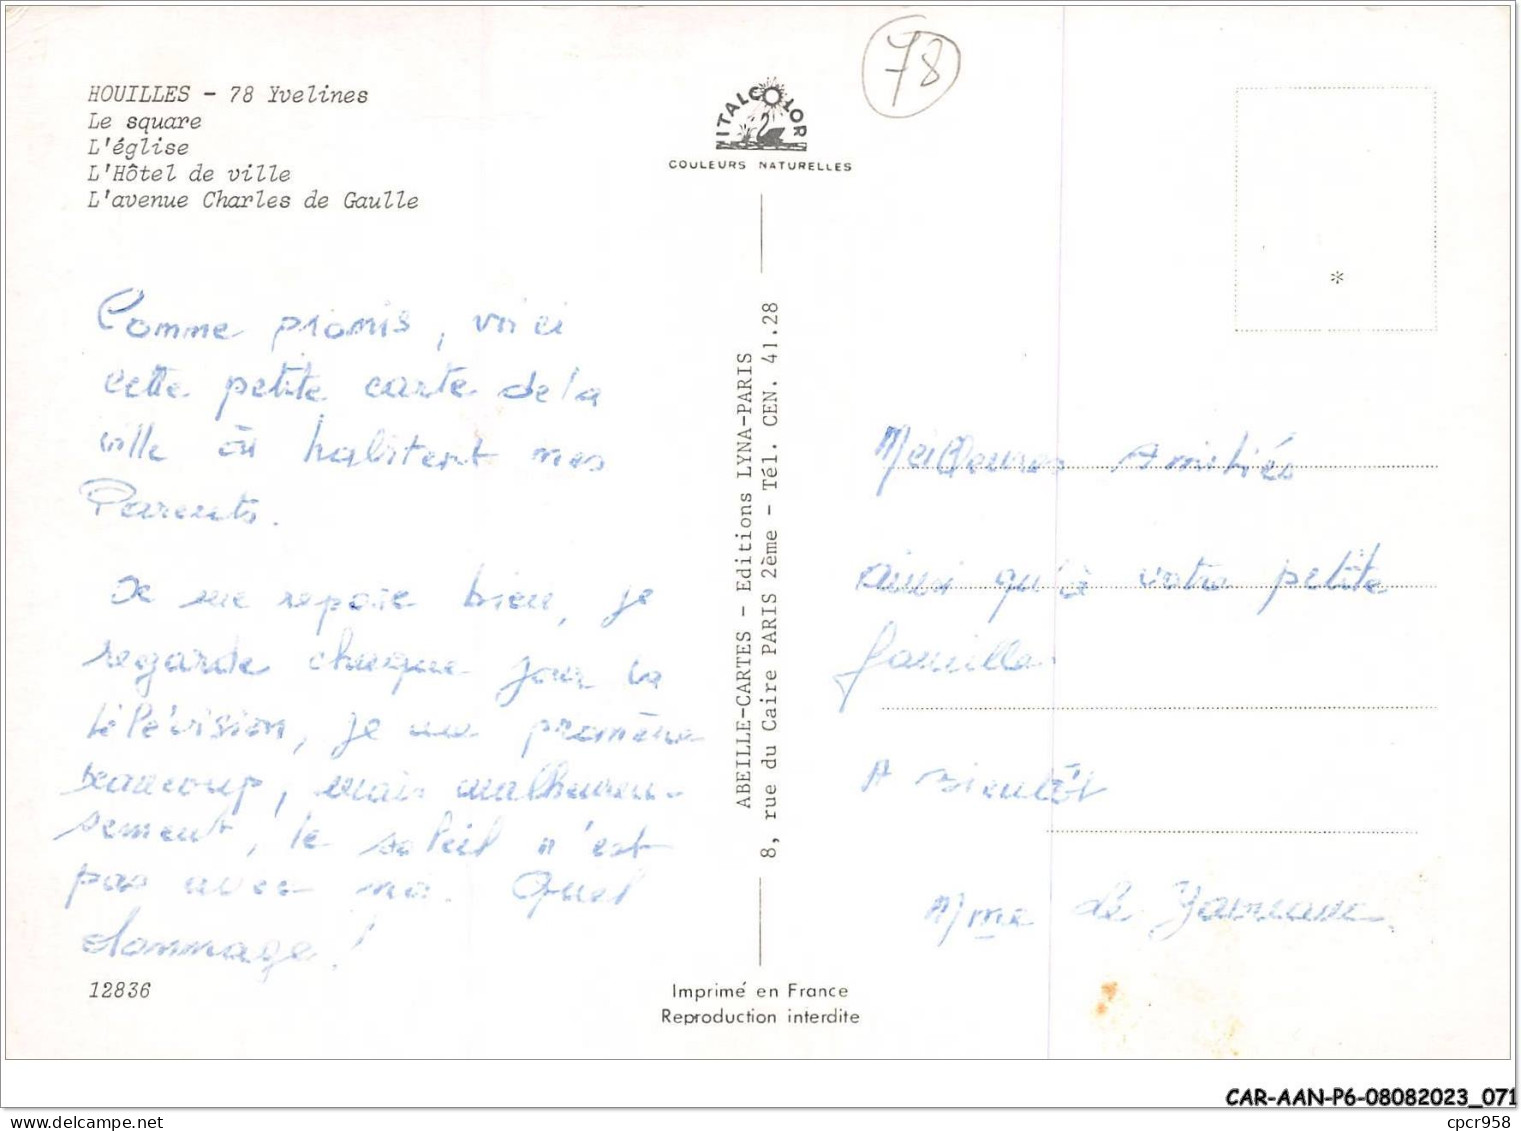 HOUILLES - 78 Yvelines
Le square
L'église
L'Hôtel de ville
L'avenue Charles de Gaulle
Comme promis, voici
cette petite carte de la
ville où habitent mes
Parents.
Je me repose bien, je
regarde chaque jour la
télévision, je me promène
beaucoup, mais malheureu-
sement, le soleil n'est
pas avec moi. Quel
dommage!
12836
VITALCOLOR
COULEURS NATURELLES
ABEILLE-CARTES - Editions LYNA-PARIS
8, rue du Caire PARIS 2ème - Tél. CEN. 41.28
Imprimé en France
Reproduction interdite
78
*
Meilleures Amitiés
ainsi qu'à votre petite
famille
A Bientôt
Mme Le
CAR-AAN-P6-08082023_071
cpcr958